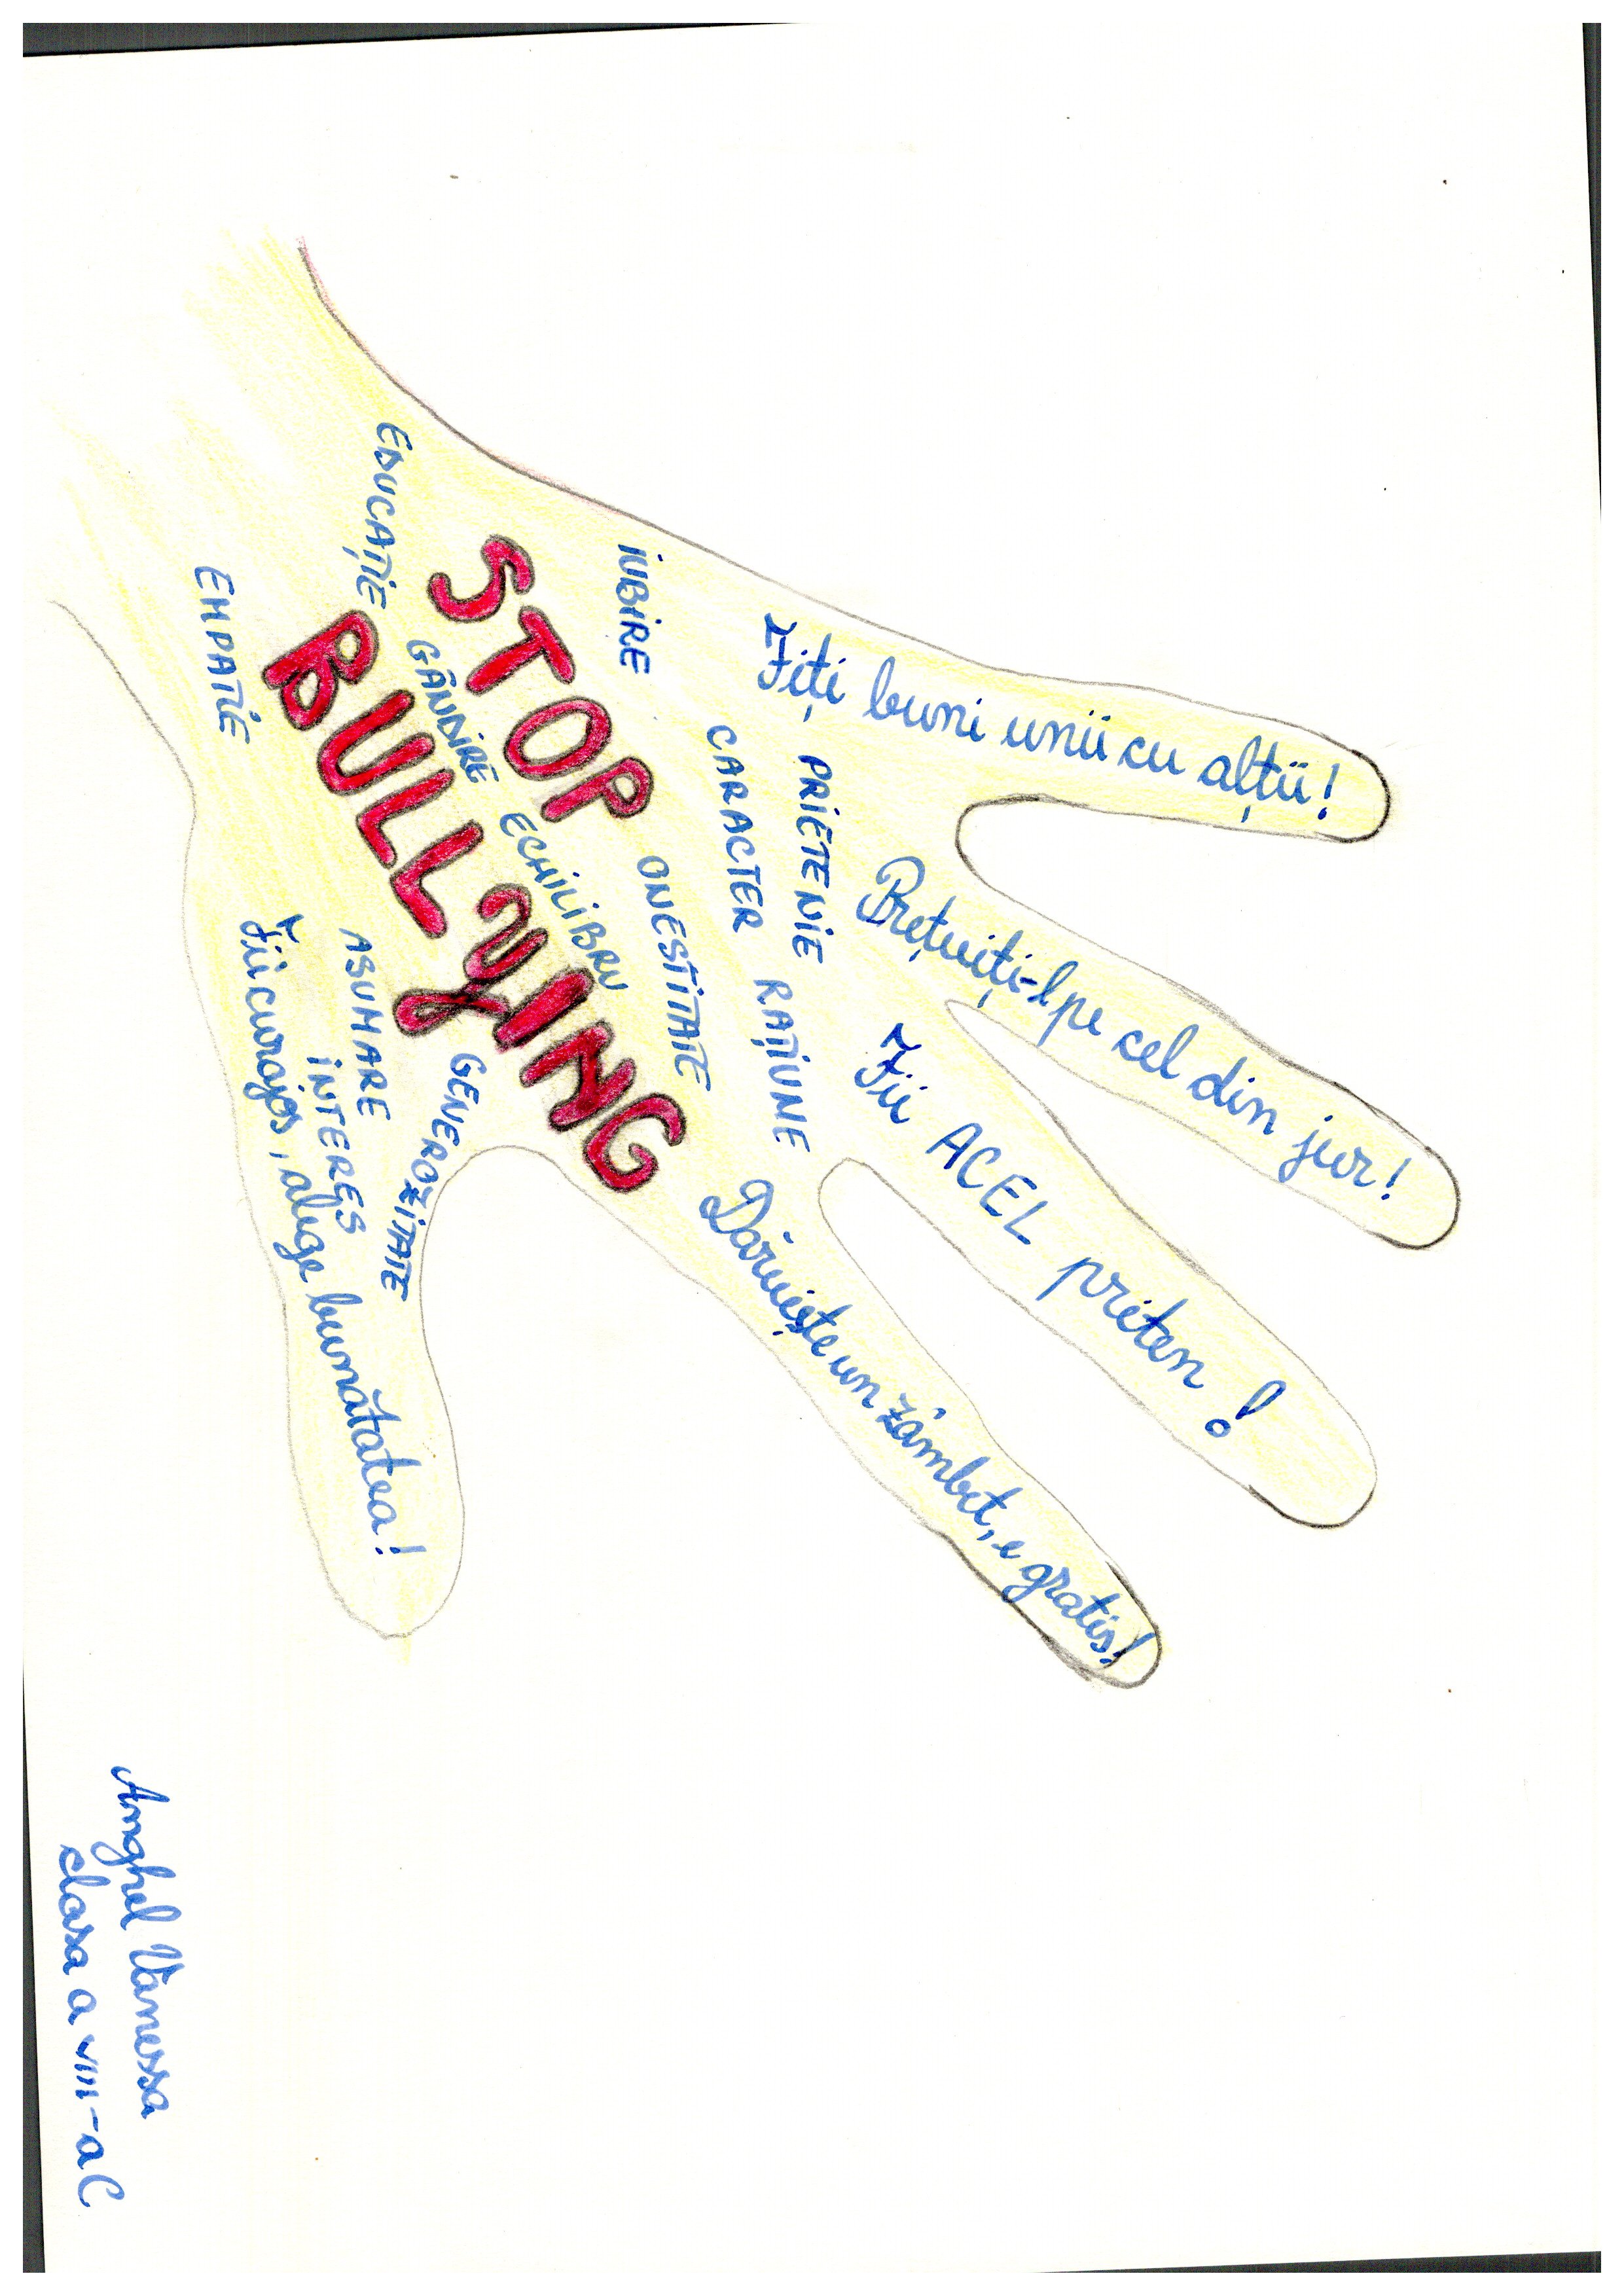 Fiți buni unii cu alții!
Prețuiți-l pe cel din jur!
Fii ACEL priten!
Dăruiește un zâmbet, e gratis!
Fii curajos, alege bunătatea!
IUBIRE
PRIETENIE
CARACTER
RAȚIUNE
ONESTITATE
STOP
EDUCAȚIE
GÂNDIRE
ECHILIBRU
BULLYING
EMPATIE
GENEROZITATE
ASUMARE
INTERES
Anghel Vanessa
clasa a VIII-a C